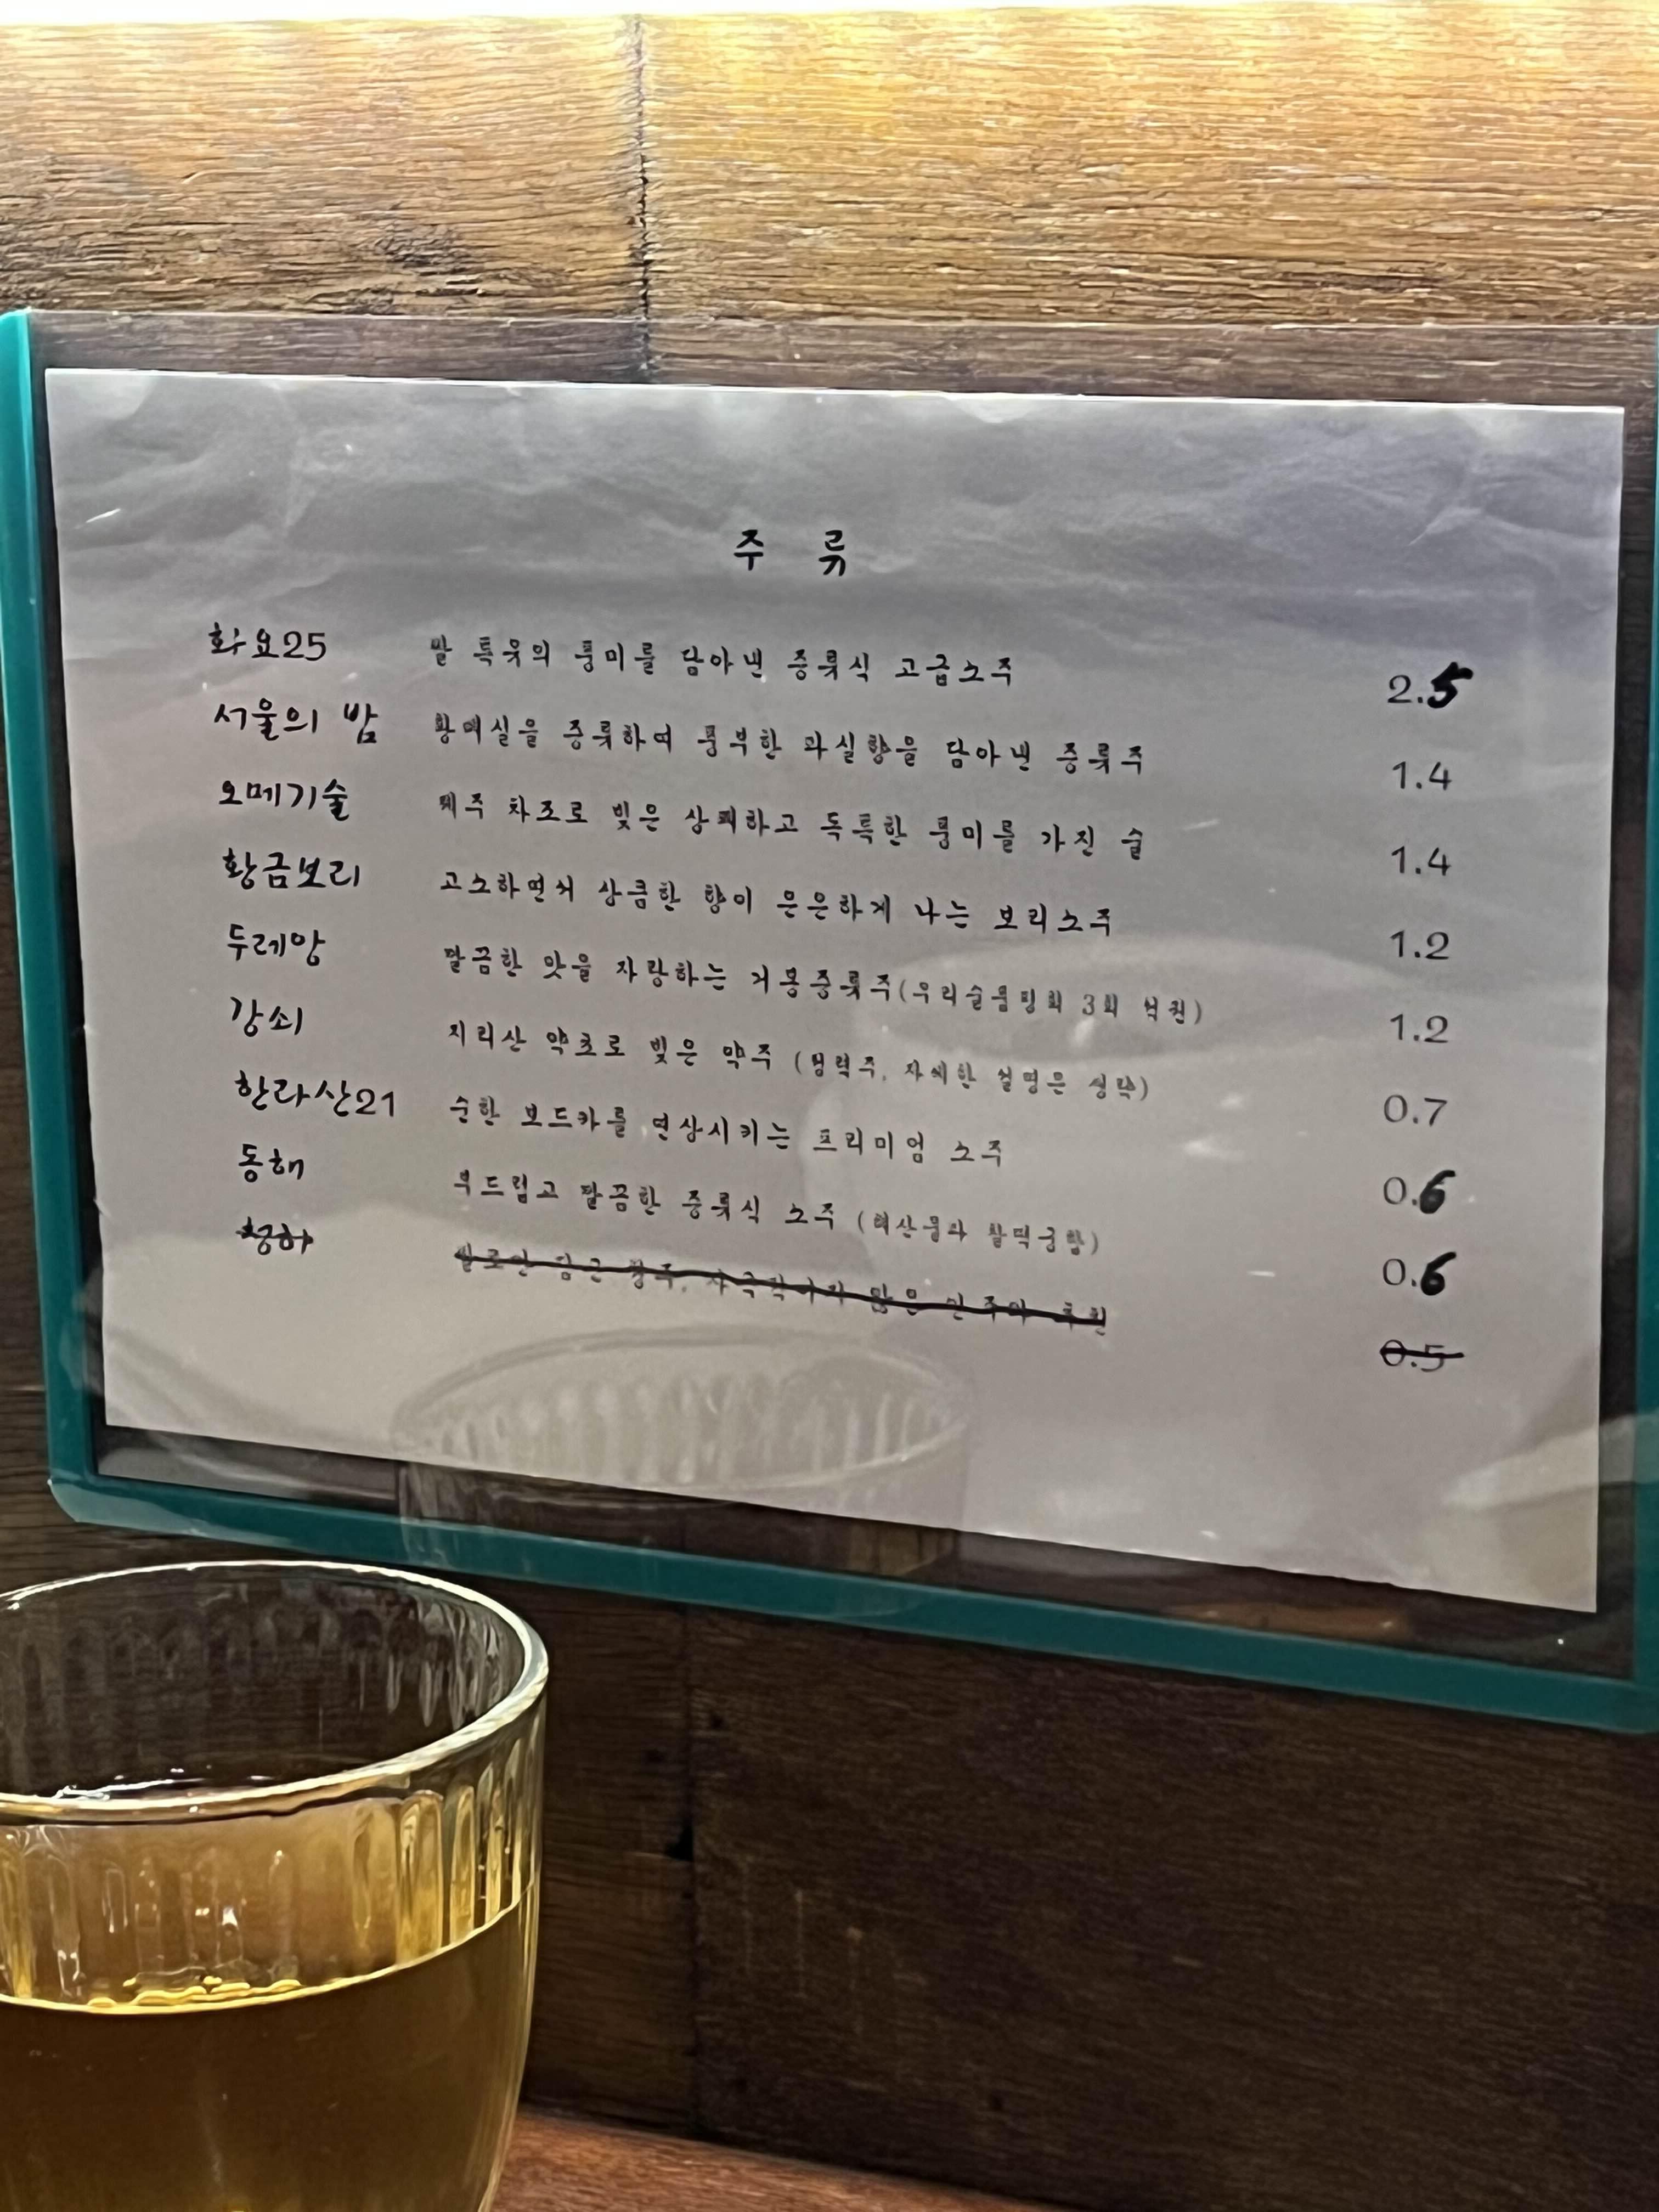 주 류
화요25 쌀 특유의 풍미를 담아낸 증류식 고급소주 2.5
서울의 밤 황매실을 증류하여 풍부한 과실향을 담아낸 증류주 1.4
오메기술 제주 차조로 빚은 상쾌하고 독특한 풍미를 가진 술 1.4
황금보리 고소하면서 상큼한 향이 은은하게 나는 보리소주 1.2
두레앙 달콤한 맛을 자랑하는 거봉증류주(우리술품평회 3회 석권) 1.2
강쇠 지리산 약초로 빚은 약주 (정력주, 자세한 설명은 생략) 0.7
한라산21 순한 보드카를 연상시키는 프리미엄 소주 0.6
동해 부드럽고 달콤한 증류식 소주 (해산물과 찰떡궁합) 0.6
청하 쌀로만 담근 청주, 자극적이지 않은 안주에 추천 0.5